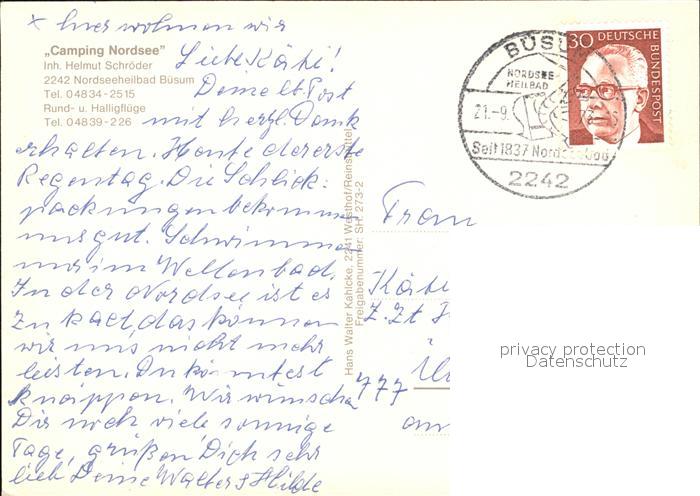 x hier wohnen wir
„Camping Nordsee"
Inh. Helmut Schröder
2242 Nordseeheilbad Büsum
Tel. 04834-2515
Rund- u. Halligflüge
Tel. 04839-226
Liebe Käthi!
Deine lb. Post
mit herzl. Dank
erhalten. Heute der erste
Regentag. Die Schlick-
packungen bekommen
uns gut. Schwimmen
nur im Wellenbad.
In der Nordsee ist es
zu kalt, das können
wir uns nicht mehr
leisten. Du könntest
kneippen. Wir wünschen
Dir noch viele sonnige
Tage, grüßen Dich sehr
lieb Deine Walter & Hilde
Hans Walter Kahlcke, 2241 Westhof/Reinsbüttel
Freigabenummer: SH. 273-2
BÜSUM
NORDSEE-
HEILBAD
21.-9.
Seit 1837 Nordseebad
2242
30 DEUTSCHE
BUNDESPOST
Frau
Käthi
Z. Zt
777
am
privacy protection
Datenschutz